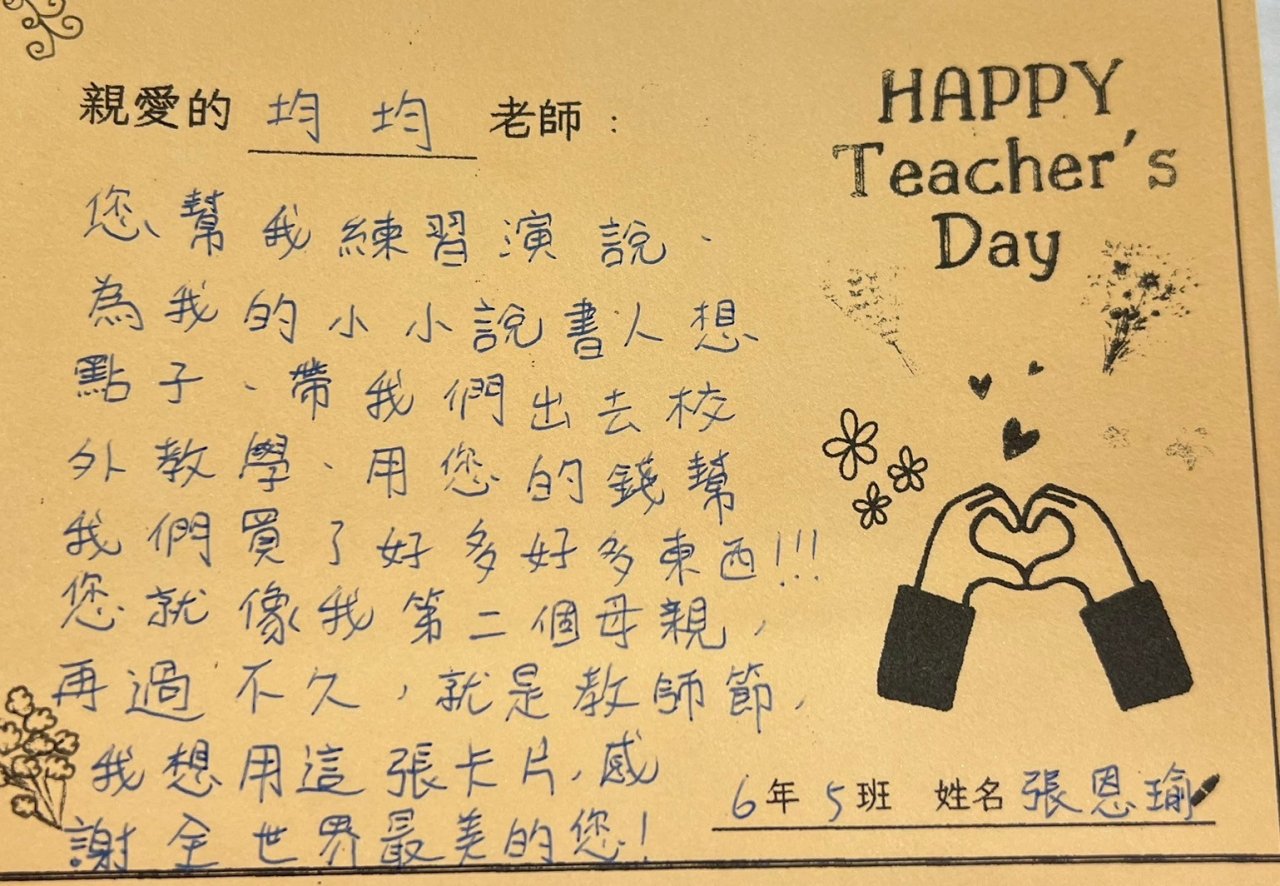 親愛的 均均 老師：
您幫我練習演說、
為我的小小說書人想
點子、帶我們出去校
外教學、用您的錢幫
我們買了好多好多東西!!!
您就像我第二個母親，
再過不久，就是教師節，
我想用這張卡片，感
謝全世界最美的您!
HAPPY
Teacher's
Day
6年5班 姓名 張恩瑜